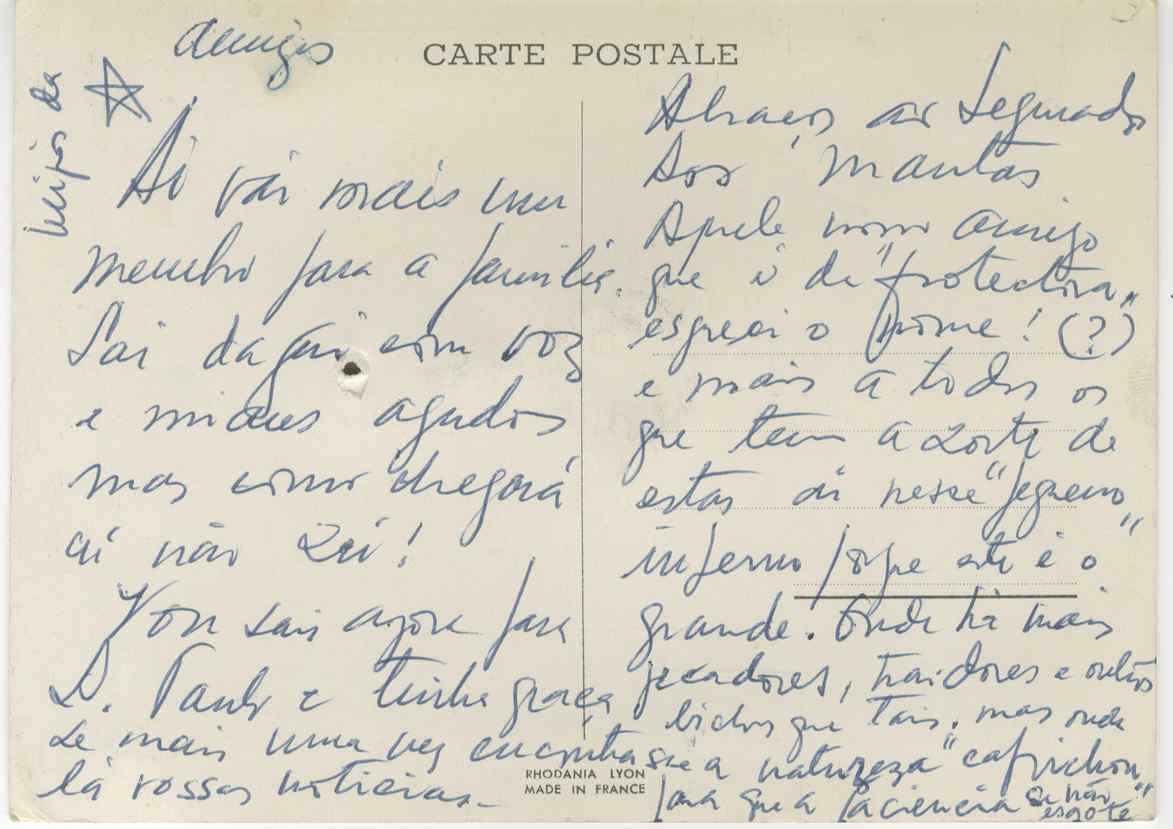 CARTE POSTALE
Amigos
Aí vai mais um
membro para a familia.
Sai daqui com voz
e miaus agudos
mas como chegará
aí não sei!
Vou sair agora para
S. Paulo e tinha graça
se mais uma vez encontrasse
lá vossas noticias.
Beijos da
Abraços ao Segurado
Aos Mantas
Aquele novo amigo
que é da "protectora"
esqueci o nome! (?)
e mais a todos os
que tem a sorte de
estar aí nesse "pequeno"
inferno porque este é o
grande. Onde há mais
pecadores, traidores e outros
bichos que tais, mas onde
a natureza "caprichou"
para que a paciencia se não
esgote
RHODANIA LYON
MADE IN FRANCE